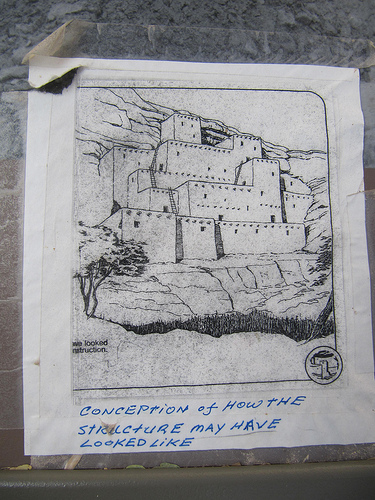 we looked
nstruction.
CONCEPTION of HOW THE
STRUCTURE MAY HAVE
LOOKED LIKE